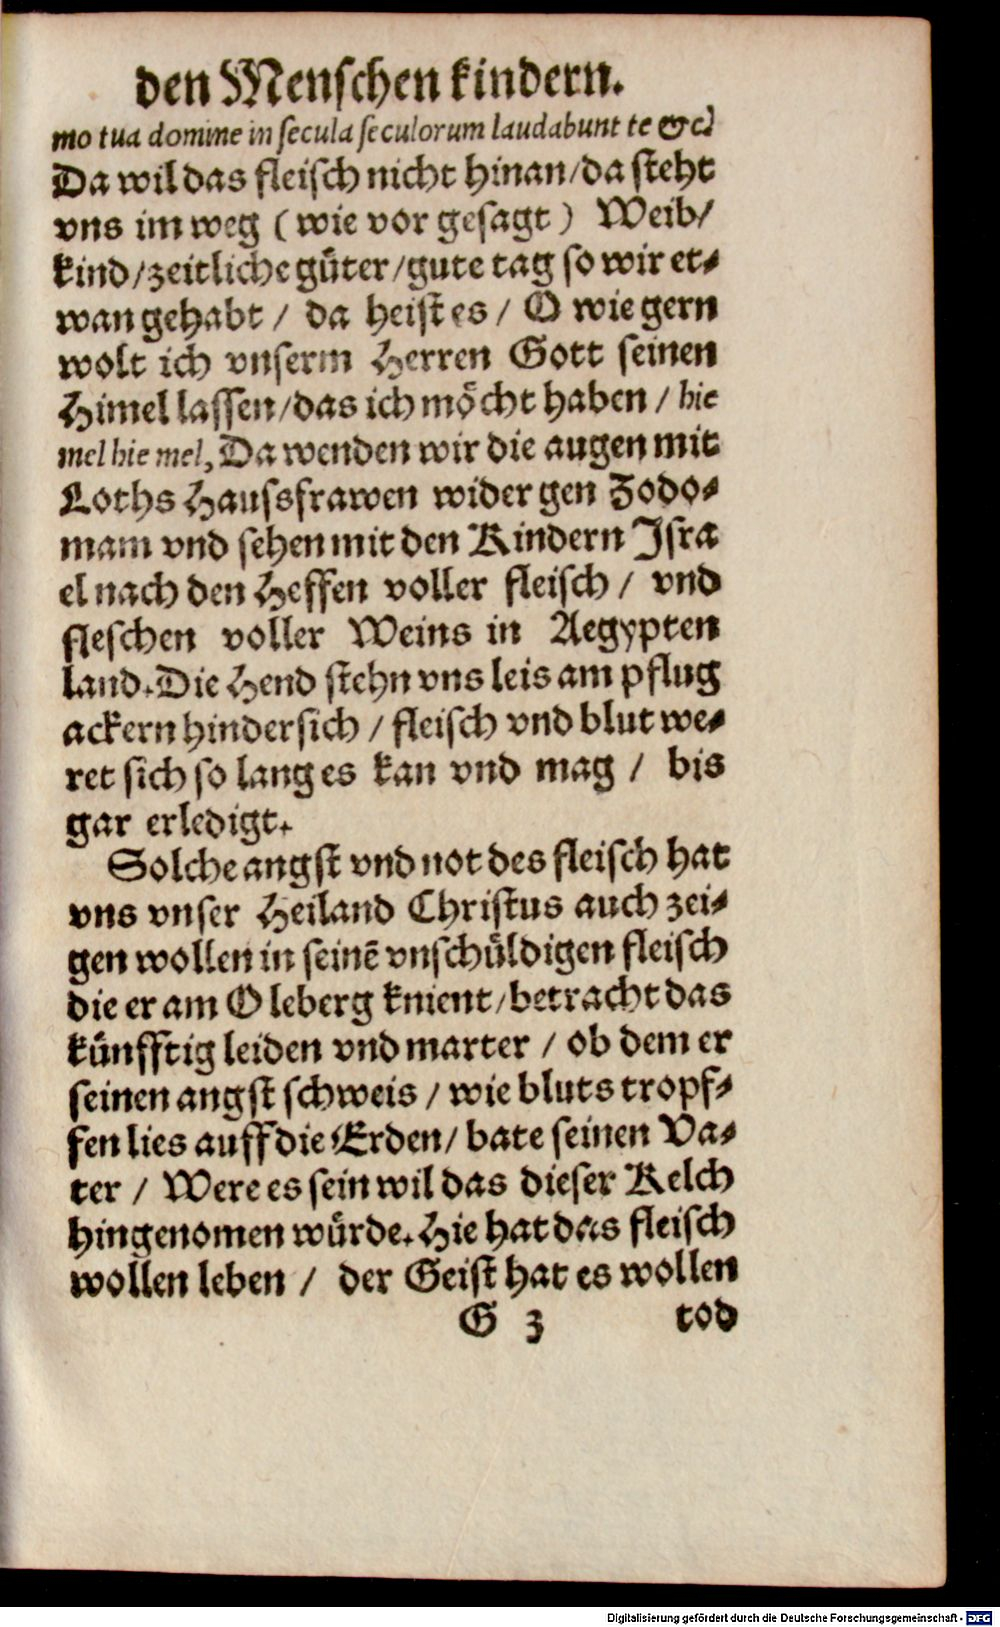 den Menschen kindern.
mo tua domine in secula seculorum laudabunt te &c.
Da wil das fleisch nicht hinan/da steht
vns im weg (wie vor gesagt) Weib/
kind/zeitliche güter/gute tag so wir et⸗
wan gehabt / da heist es / O wie gern
wolt ich vnserm Herren Gott seinen
Himel lassen/das ich möcht haben / hie
mel hie mel, Da wenden wir die augen mit
Loths Haussfrawen wider gen Zodo⸗
mam vnd sehen mit den Kindern Isra
el nach den Heffen voller fleisch / vnd
fleschen voller Weins in Aegypten
land. Die Hend stehn vns leis am pflug
ackern hindersich / fleisch vnd blut we⸗
ret sich so lang es kan vnd mag / bis
gar erledigt.
Solche angst vnd not des fleisch hat
vns vnser Heiland Christus auch zei⸗
gen wollen in seinē vnschüldigen fleisch
die er am Oleberg knient/betracht das
künfftig leiden vnd marter / ob dem er
seinen angst schweis / wie bluts tropf⸗
fen lies auff die Erden/ bate seinen Va⸗
ter / Were es sein wil das dieser Kelch
hingenomen würde. Hie hat das fleisch
wollen leben / der Geist hat es wollen
G 3 tod
Digitalisierung gefördert durch die Deutsche Forschungsgemeinschaft - DFG